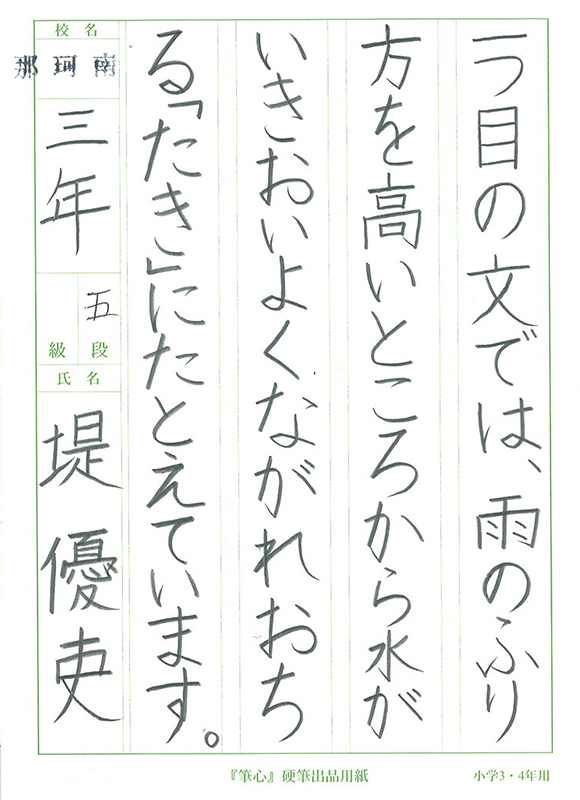 一つ目の文では、雨のふり
方を高いところから水が
いきおいよくながれおち
る「たき」にたとえています。
校名
那珂南
三年
五
級 段
氏名
堤 優吏
『筆心』硬筆出品用紙
小学3・4年用